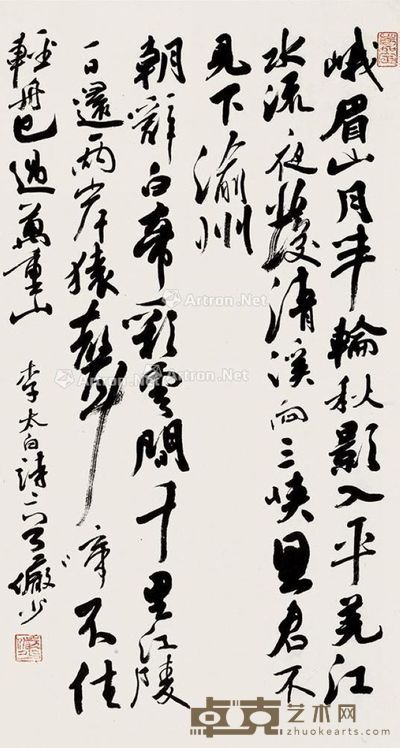 峨眉山月半輪秋影入平羌江
水流夜發清溪向三峽思君不
見下渝州
朝辭白帝彩雲間千里江陵
一日還兩岸猿聲啼不住
輕舟已過萬重山
李太白詩二首 儼少
Artron.Net
Artron.Net
Artron.Net
Artron.Net
卓克艺术网
zhuokearts.com